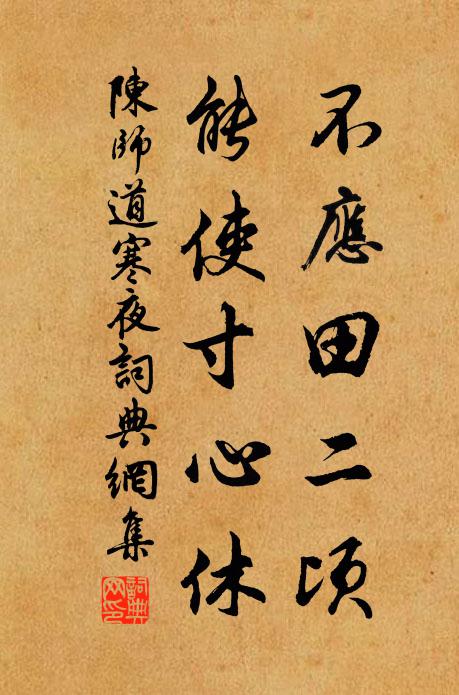 不應田二頃
能使寸心休
陳師道寒夜詞典網集
詞典網印